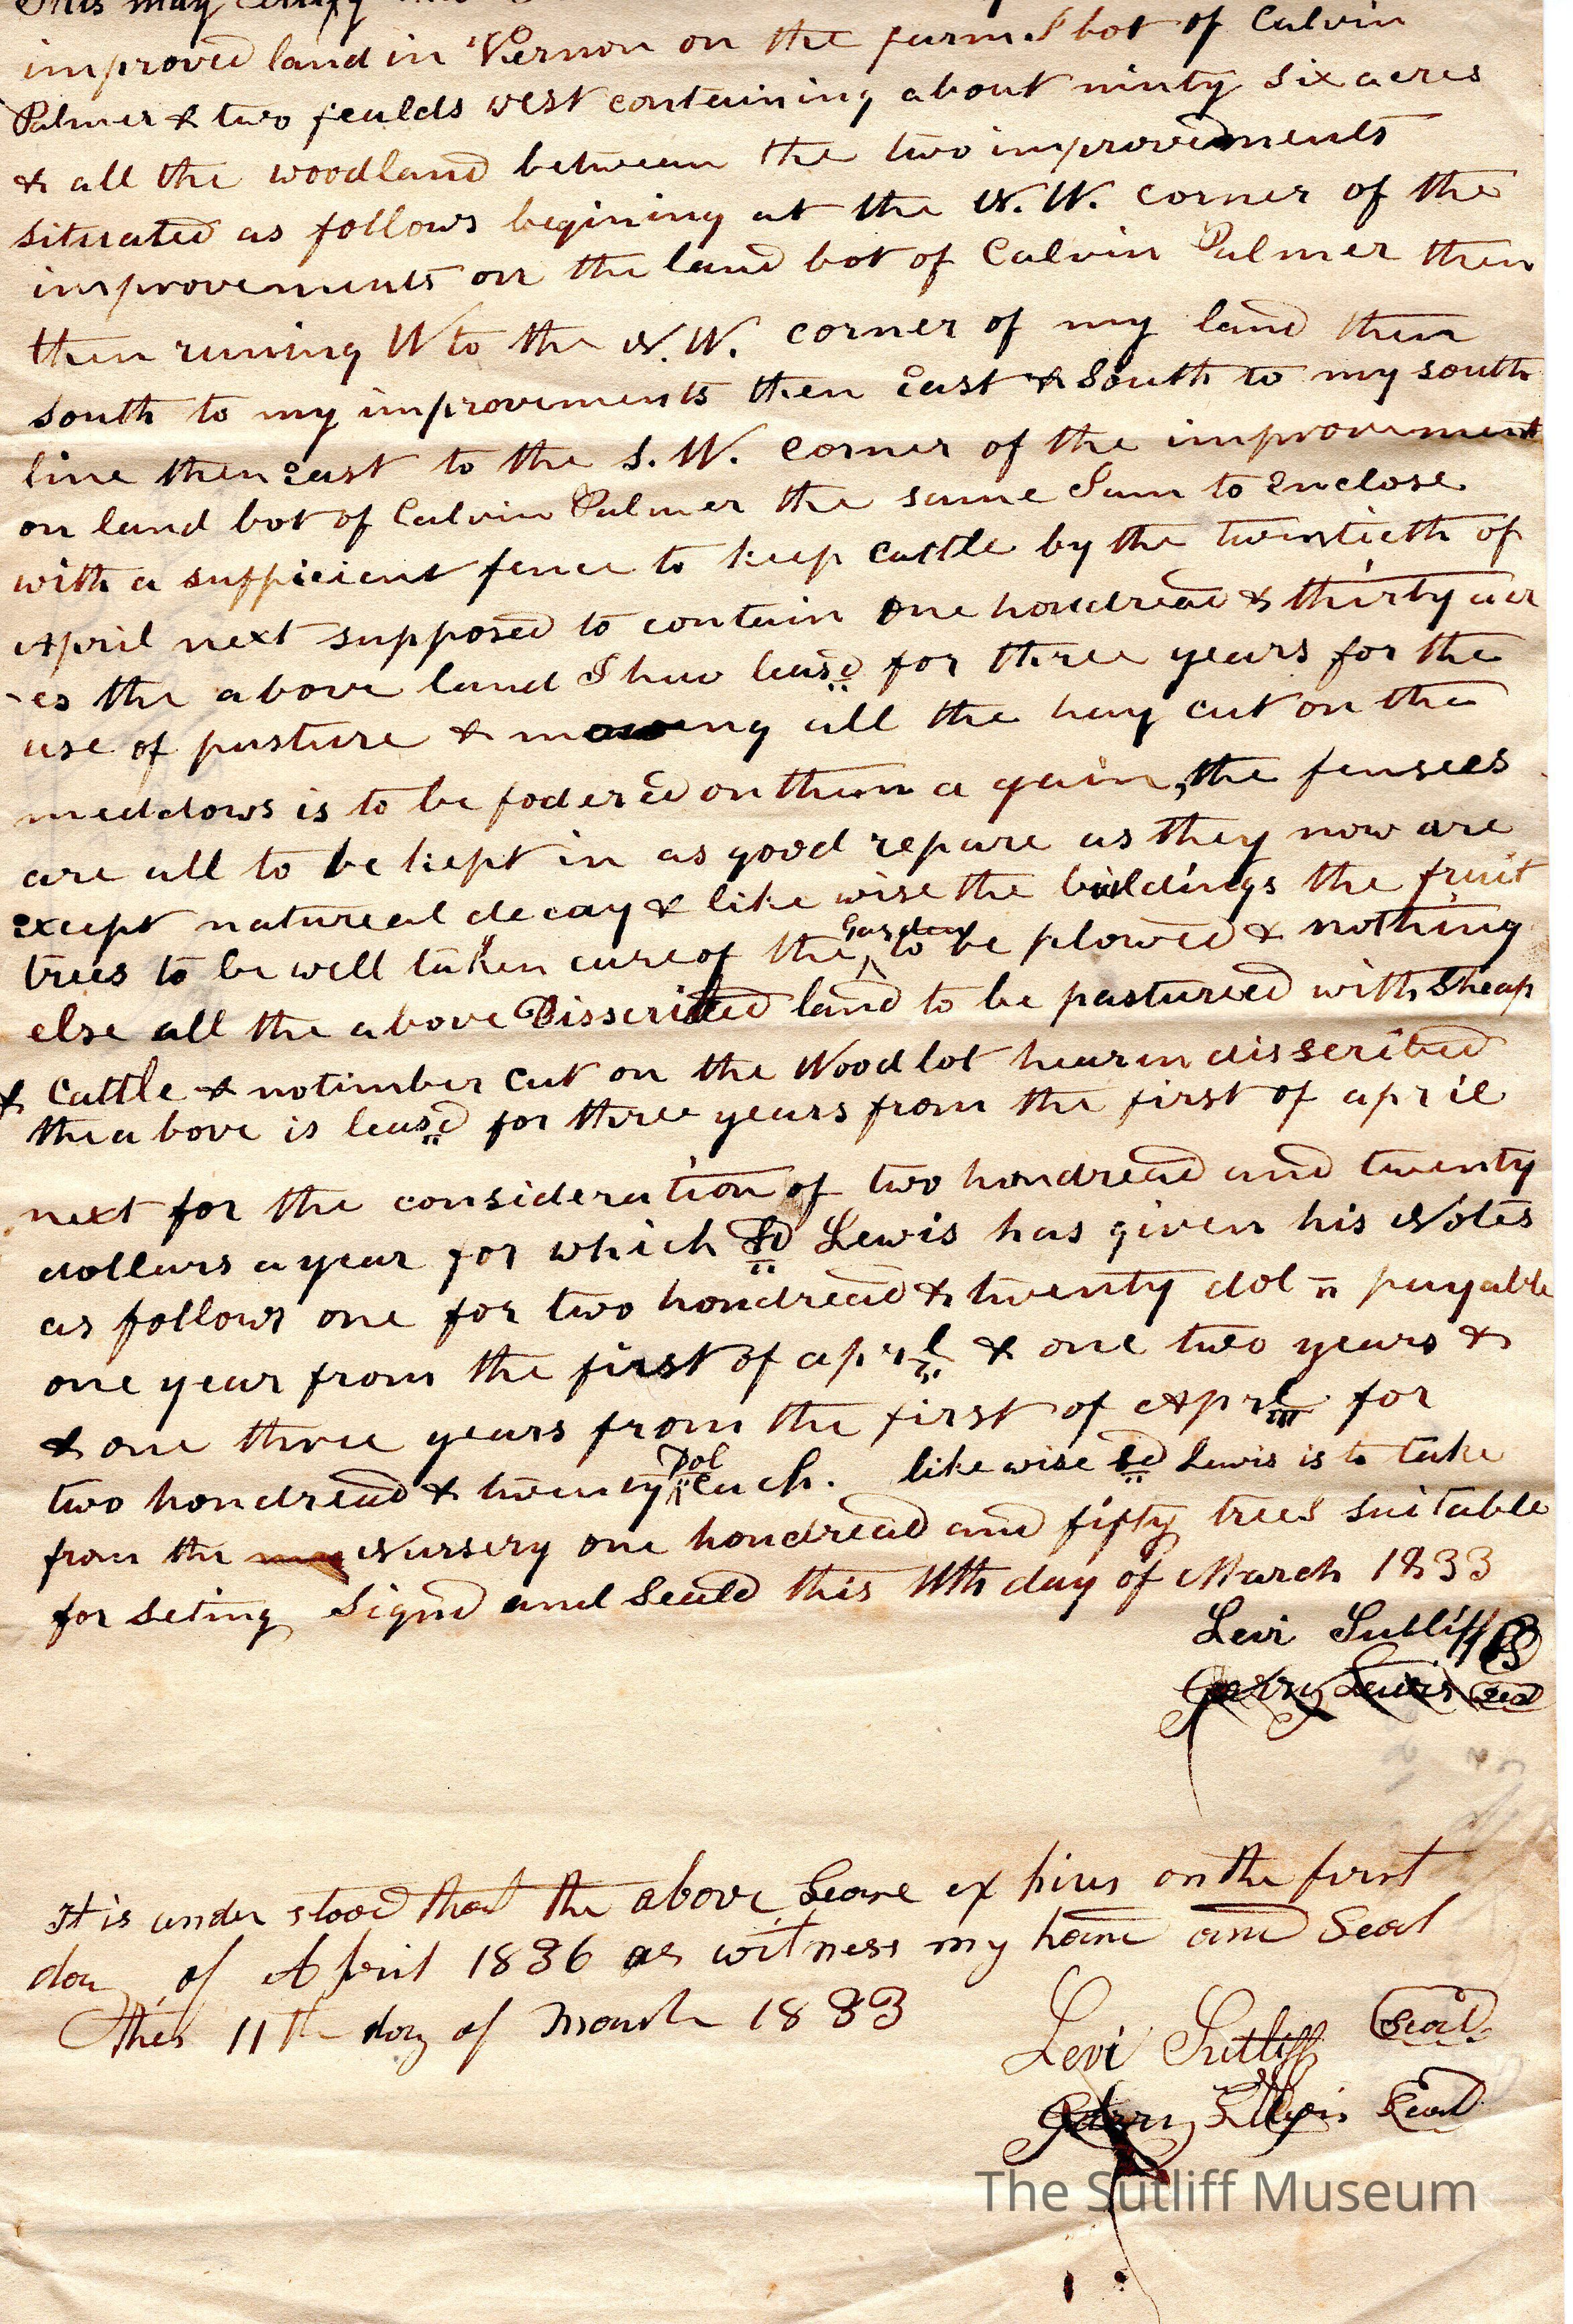 This may certify
improved land in Vernon on the farm I bot of Calvin
Palmer & two feulds west containing about ninty six acres
& all the woodland between the two improvements
situated as follows begining at the N.W. corner of the
improvements on the land bot of Calvin Palmer then
then runing W to the N.W. corner of my land then
south to my improvements then East & South to my south
line then East to the S.W. corner of the improvement
on land bot of Calvin Palmer the same I am to Enclose
with a suffiecient fence to keep cattle by the twentieth of
April next supposed to contain one hondread & thirty acr
-es the above land I hav leasd for three years for the
use of pasture & mowing all the hay cut on the
meddows is to be foderd on them a gain, the fensees
are all to be kept in as good repare as they now are
except natureal decay & like wise the bildings the fruit
trees to be well taken care of the Garden to be plowed & nothing
else all the above Disscribed land to be pastured with Sheap
& Cattle & no timber cut on the Wood lot hearin disscribed
the above is leasd for three years from the first of april
next for the consideration of two hondread and twenty
dollars a year for which Sd Lewis has given his Notes
as follows one for two hondread & twenty dol n payable
one year from the first of aprl & one two years &
& one three years from the first of Aprl for
two hondread & twenty Dol each. likewise sd Lewis is to take
from the my Nursery one hondread and fifty trees suitable
for seting Signd and Seald this 11th day of March 1833
Levi Sutliff
Garry Lewis Seal
It is under stood that the above Lease expires on the first
day of April 1836 as witness my hand and Seal
this 11th day of March 1833
Levi Sutliff Seal
Garry Lewis Seal
The Sutliff Museum